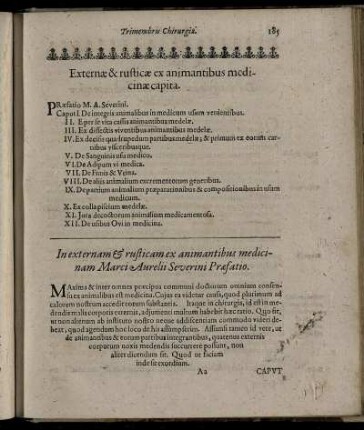 Trimembris Chirurgiæ. 185
Externæ & rusticæ ex animantibus medi-
cinæ capita.
PRæfatio M. A. Severini.
Caput I. De integris animalibus in medicum usum venientibus.
II. E per se vita cassis animantibus medelæ.
III. Ex dissectis viventibus animantibus medelæ.
IV. Ex decisis quadrupedum partibus medelæ; & primum ex earum car-
tibus visceribusque.
V. De Sanguinis usu medico.
VI. De Adipum vi medica.
VII. De Fimis & Urina.
VIII. De aliis animalium excrementorum generibus.
IX. De partium animalium præparationibus & compositionibus in usum
medicum.
X. Ex collapsitium medelæ.
XI. Jura decoctorum animalium medicamentosa.
XII. De usibus Ovi in medicina.
In externam & rusticam ex animantibus medici-
nam Marci Aurelii Severini Præfatio.
MAxima & inter omnes præcipua communi doctorum omnium consen-
su ex animalibus est medicina. Cujus ea videtur causa, quod plurimum ad
calorem nostrum accedit eorum substantia. Itaque in chirurgia, id est in me-
dendis malis corporis externis, adjumenti multum habebit hæc ratio. Qua fit,
ut non alienum ab instituto nostro neque addiscentium commodo videri de-
beat, quod agendum hoc loco de his assumpserim. Assumsi tamen id vere, ut
de animantibus & eorum partibus integrantibus, quatenus externis
corporum noxis medendis succurrere possunt, non
aliter dicendum sit. Quod ut faciam
inde sit exordium.
Aa CAPVT